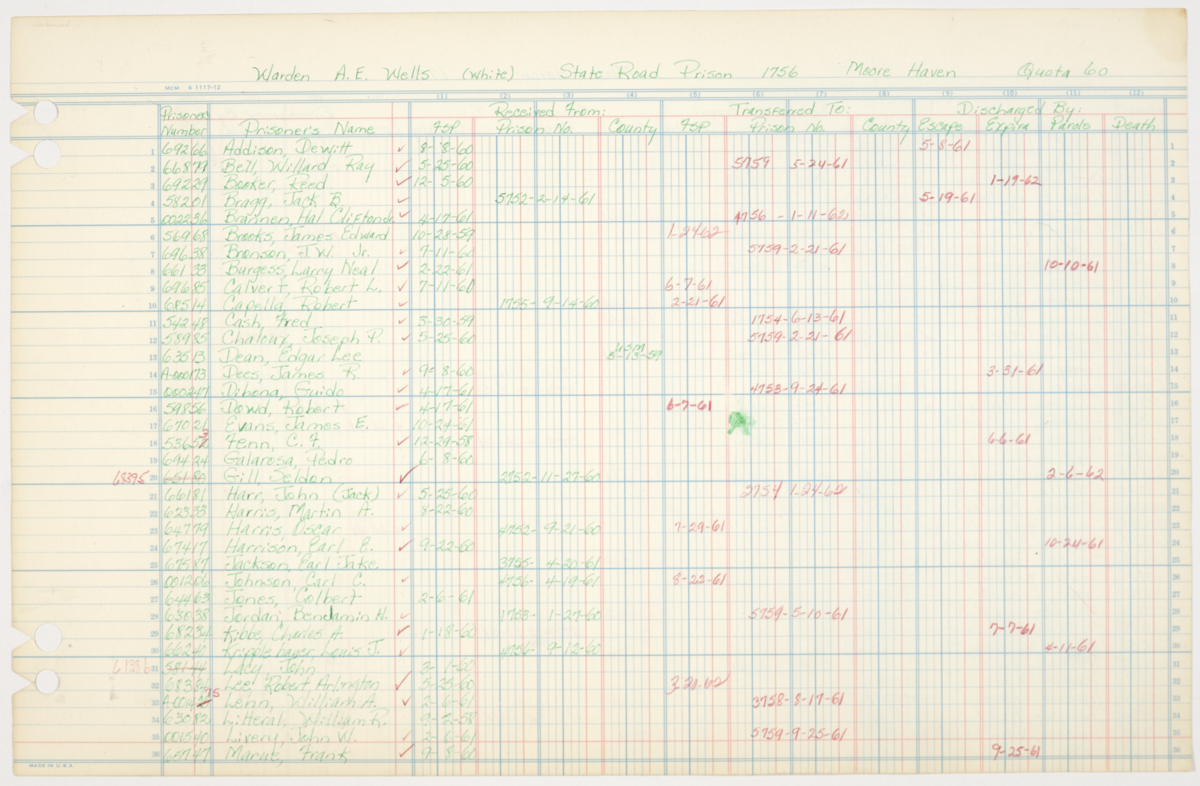 Warden A.E. Wells (White) State Road Prison 1756 Moore Haven Quota 60
MCM 6 1117-12
(1) (2) (3) (4) (5) (6) (7) (8) (9) (10) (11) (12)
Received From: Transferred To: Discharged By:
Prisoners Number Prisoner's Name FSP Prison No. County FSP Prison No. County Escape Expira Parole Death
1 69266 Addison, Dewitt ✓ 8-8-60 5-8-61 1
2 66879 Bell, Willard Ray ✓ 5-25-60 5759 5-24-61 2
3 69229 Booker, Reed ✓ 12-5-60 1-17-62 3
4 58201 Bragg, Jack B. ✓ 5752-2-14-61 5-19-61 4
5 002236 Brannen, Hal ✓ 4-17-61 4756 - 1-11-62 5
6 56968 Brooks, James Edward 10-28-59 1-24-62 6
7 69638 Bronson, J.W. Jr. ✓ 7-11-60 5759-2-21-61 7
8 66133 Burgess, Larry Neal ✓ 2-22-61 10-10-61 8
9 69685 Calvert, Robert L. ✓ 7-11-60 6-7-61 9
10 68514 Capella, Robert ✓ 1755- 9-14-60 2-21-61 10
11 54248 Cash, Fred ✓ 3-30-59 1754-6-13-61 11
12 58985 Joseph P. ✓ 5-25-60 5759-2-21-61 12
13 63513 Dean, Edgar Lee 5-13-59 13
14 A-000173 Dees, James R. ✓ 9-8-60 3-31-61 14
15 000247 Dibona, Guido ✓ 4-17-61 4753-9-24-61 15
16 59856 Dowd, Robert ✓ 4-17-61 6-7-61 16
17 67021 Evans, James E. 10-24-61 17
18 Fenn, C. F. ✓ 12-29-58 6-6-61 18
19 69424 Galarosa, Pedro 6-8-60 19
68395 20 Gill, Seldon ✓ 2752-11-27-60 2-6-62 20
21 66181 Harr, John (Jack) ✓ 5-25-60 2754 1-24-62 21
22 62333 Harris, Martin H. 8-22-60 22
23 64779 Harris, Oscar ✓ 4752- 9-21-60 7-29-61 23
24 67417 Harrison, Earl E. ✓ 9-22-60 10-24-61 24
25 67517 Jackson, Earl Jake. 3755- 4-20-61 25
26 001206 Johnson, Carl C. ✓ 4756- 4-19-61 8-22-61 26
27 64463 Jones, Colbert 2-6-61 27
28 63038 Jordan, Bendamin H. ✓ 1-27-60 5759-5-10-61 28
29 68234 Kibbe, Charles A. ✓ 1-18-60 7-7-61 29
30 66240 Louis J. ✓ 4756- 9-12-60 4-11-61 30
31 Lacy, John 3-1-60 31
32 68384 Lee, Robert Arlington ✓ 5-25-60 3-20-62 32
33 Lenn, William A. ✓ 2-6-61 3758-8-17-61 33
34 63082 Litteral, William R. 9-2-58 34
35 001540 Livery, John W. ✓ 2-6-61 5759-9-25-61 35
36 65747 Frank ✓ 9-8-60 9-25-61 36
MADE IN U.S.A.